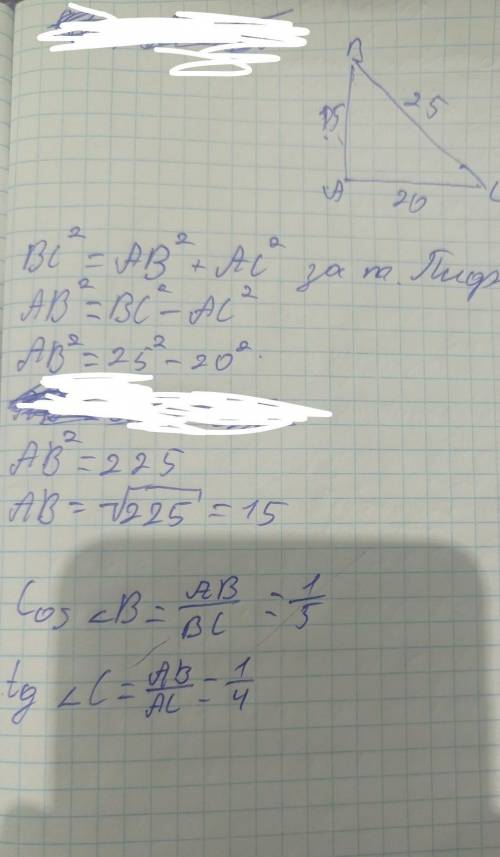 B
15
25
A
20
C
BC² = AB² + AC² за т. Піф
AB² = BC² - AC²
AB² = 25² - 20²
AB² = 225
AB = √225 = 15
Cos ∠B = AB/BC = 1/5
tg ∠C = AB/AC = 1/4